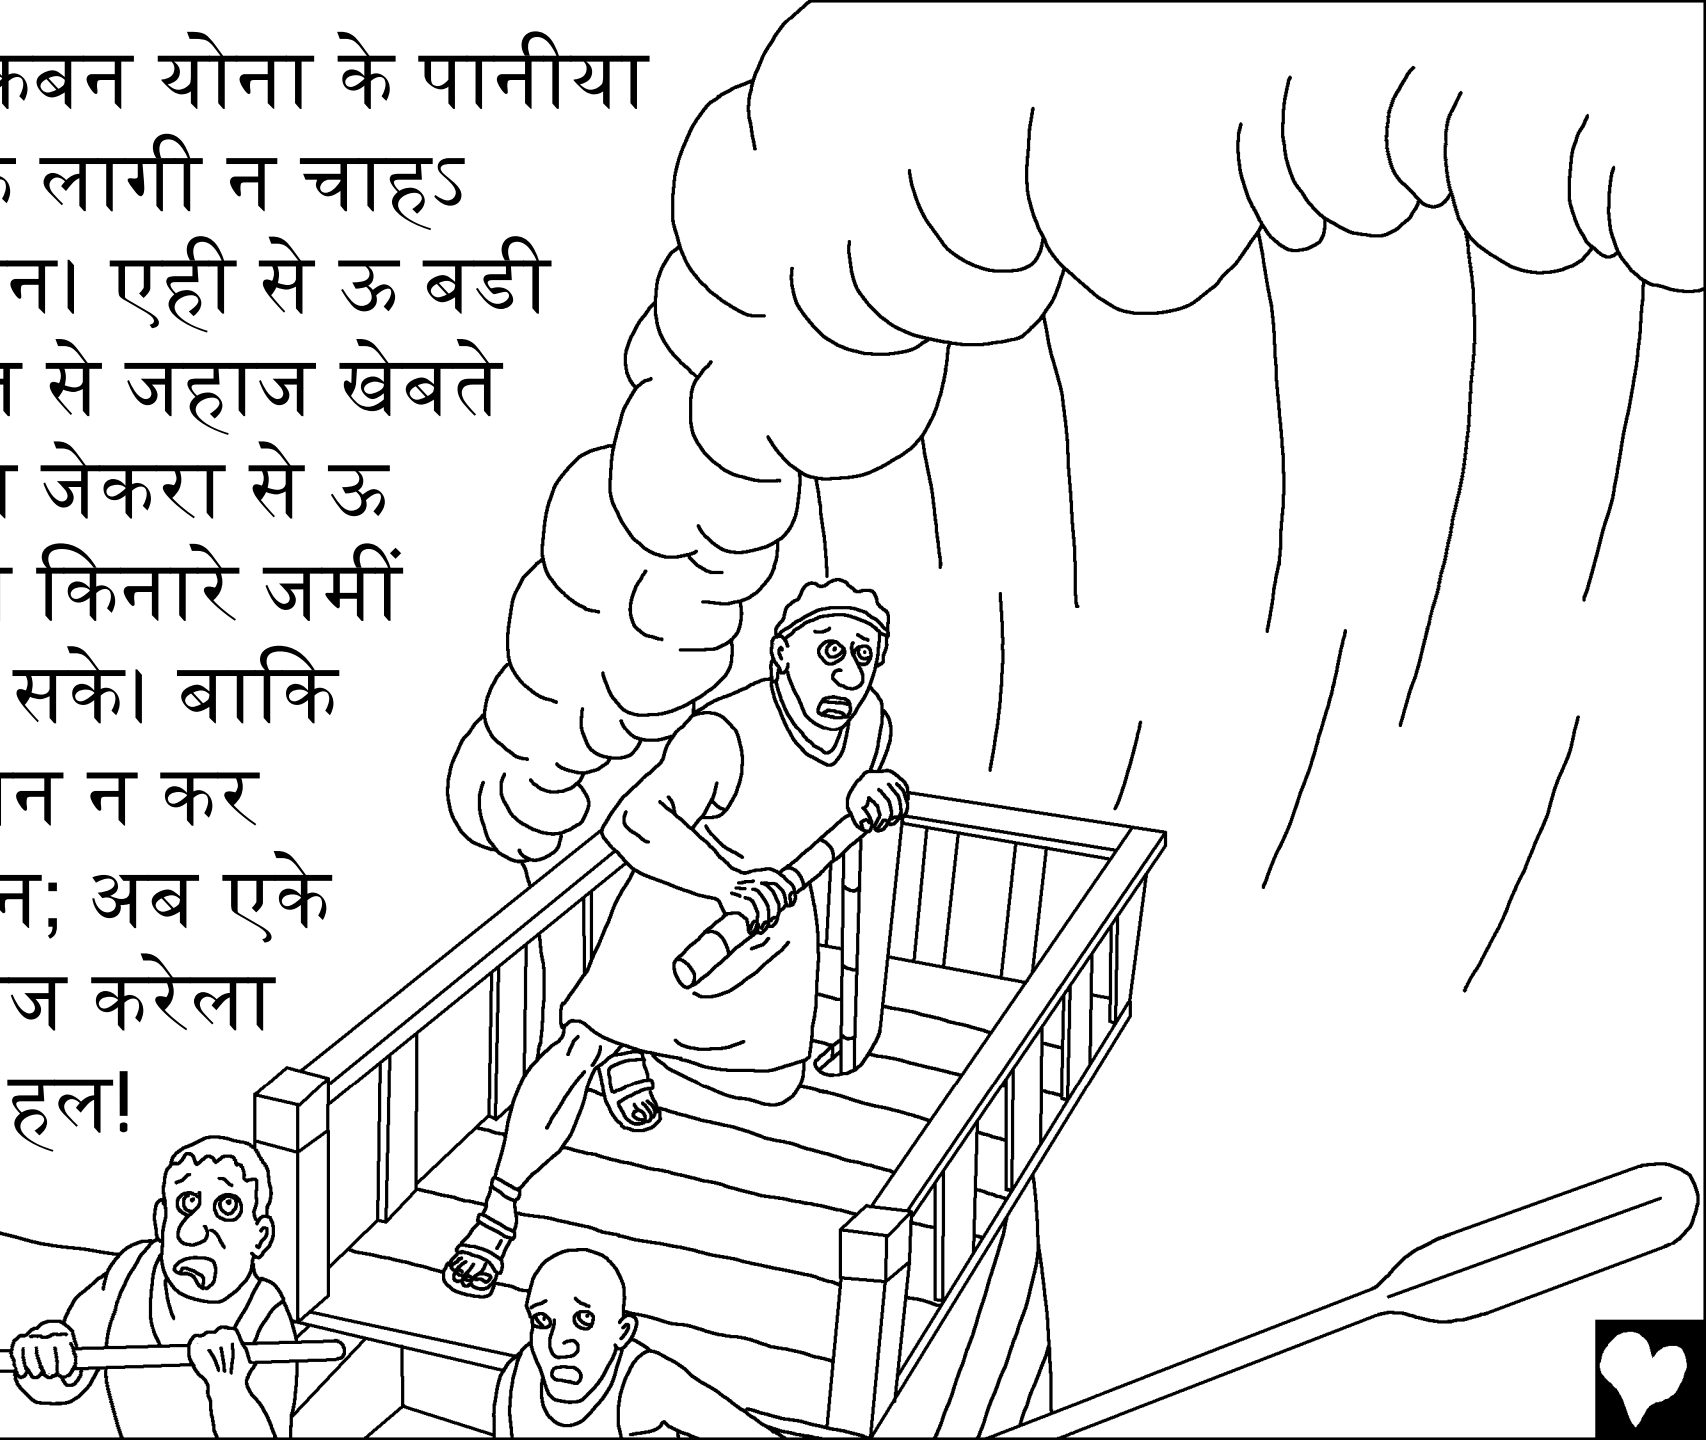 योना के पानीया
लागी न चाहऽ
एही से ऊ बडी
से जहाज खेबते
जेकरा से ऊ
किनारे जमीं
सके। बाकि
न कर
अब एके
करेला
हल!